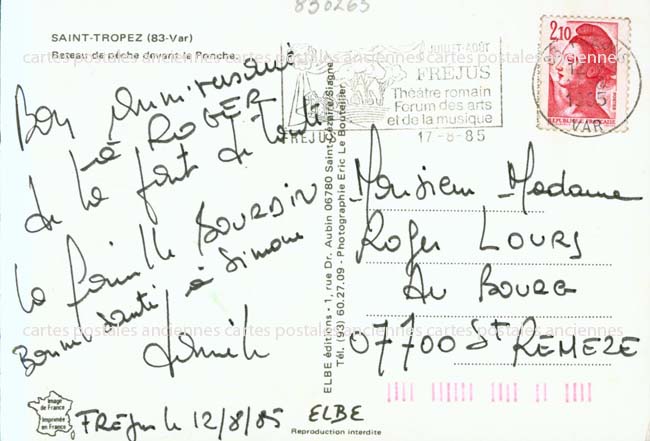 830263
SAINT-TROPEZ (83-Var)
Bateau de pêche devant la Ponche.
Bon Anniversaire
à ROGER
de la part de toute
la famille BOURDIN
Bonne santé à Simone
Famille
FREjus le 12/8/85
Image de France
Imprimée en France
ELBE
Reproduction interdite
ELBE éditions - 1, rue Dr. Aubin 06780 Saint-Cézaire/Siagne
Tél. (93) 60.27.09 - Photographie Eric Le Bouteiller
JUILLET-AOÛT
FREJUS
Théâtre romain
Forum des arts
et de la musique
FREJUS
17-8-85
2,10
REPUBLIQUE FRANCAISE
VAR
Monsieur Madame
Roger LOURS
Au BOURG
07700 St REMEZE
cartes postales anciennes cartes postales anciennes cartes postales anciennes
cartes postales anciennes cartes postales anciennes cartes postales anciennes